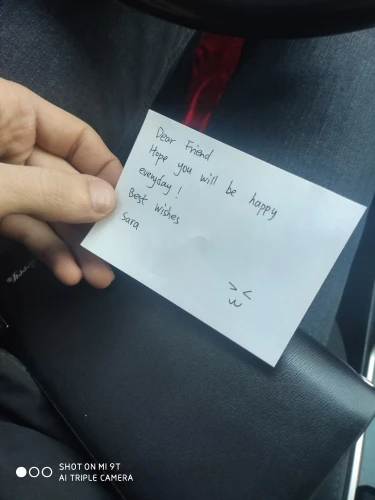 Dear Friend
Hope you will be happy
everyday!
Best wishes
Sara
SHOT ON MI 9T
AI TRIPLE CAMERA